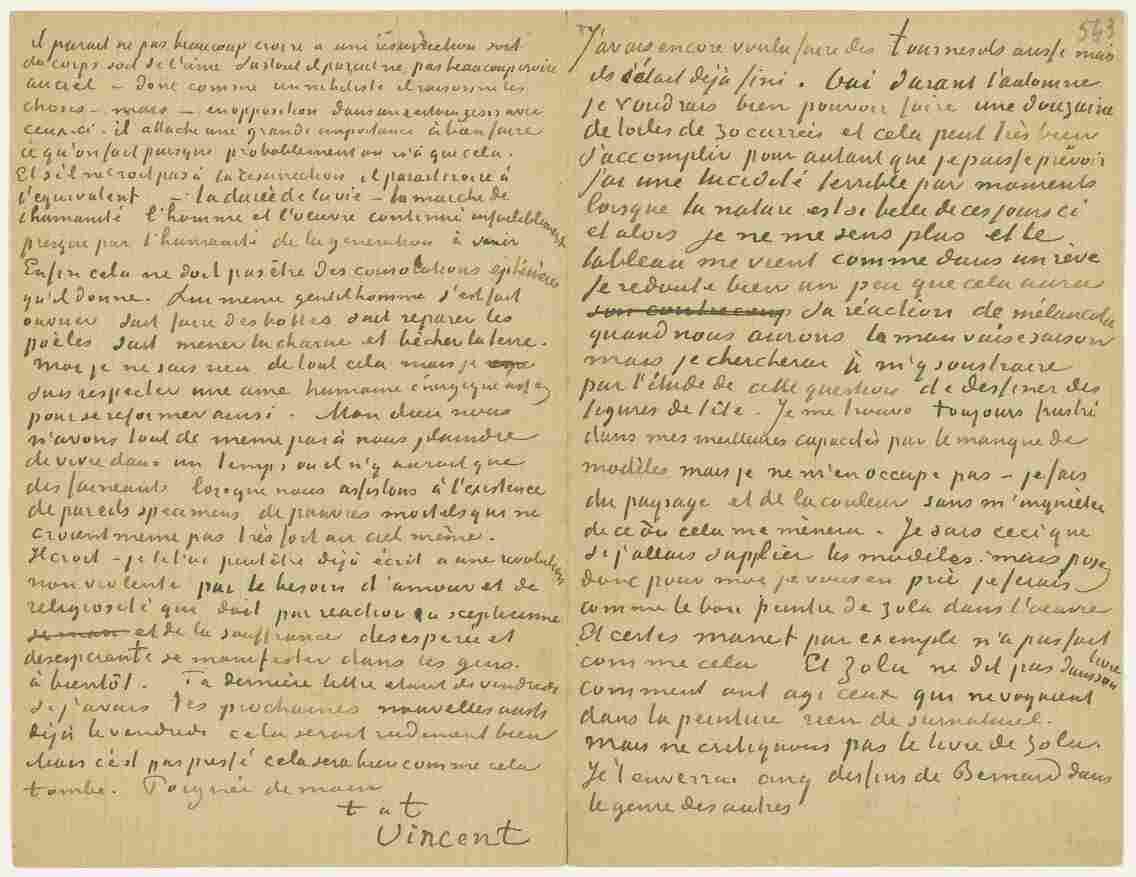 il parait ne pas beaucoup croire a une résurrection soit
du corps soit de l'âme Surtout il parait ne pas beaucoup croire
au ciel – donc comme un nihiliste il raisonne les
choses – mais – en opposition dans un certain sens avec
ceux-ci. il attache une grande importance à bien faire
ce qu'on fait puisque probablement on n'a que cela.
Et s'il ne croit pas à la resurrection il parait croire à
l'equivalent – la durée de la vie – la marche de
l'humanité l'homme et l'oeuvre continué infailliblement
presque par l'humanité de la generation à venir
Enfin cela ne doit pas être des consolations ephémères
qu'il donne. Lui meme gentilhomme s'est fait
ouvrier sait faire des bottes sait reparer les
poeles sait mener la charrue et bêcher la terre.
Moi je ne sais rien de tout cela mais je
sais respecter une ame humaine énergique assez
pour se reformer ainsi. Mon dieu nous
n'avons tout de meme pas à nous plaindre
de vivre dans un temps ou il n'y aurait que
des faineants lorsque nous assistons à l'existence
de pareils specimens de pauvres mortels qui ne
croient meme pas très fort au ciel même.
Il croit – je te l'ai peut être déjà écrit a une revolution
non violente par le besoin d'amour et de
religiosité qui doit par reaction au scepticisme
et de la souffrance desesperée et
desesperante se manifester dans les gens.
à bientôt. Ta dernière lettre etant de vendredi
si j'avais tes prochaines nouvelles aussi
déjà le vendredi cela serait rudement bien
Mais c'est pas pressé cela sera bien comme cela
tombe. Poignée de main
t à t
Vincent
543
J'avais encore voulu faire des tournesols aussi mais
c'était déjà fini. Oui durant l'automne
je voudrais bien pouvoir faire une douzaine
de toiles de 30 carrées et cela peut très bien
s'accomplir pour autant que je puisse prévoir
j'ai une lucidité terrible par moments
lorsque la nature est si belle de ces jours ci
et alors je ne me sens plus et le
tableau me vient comme dans un rêve
Je redoute bien un peu que cela aura
son contrecoup sa réaction de mélancolie
quand nous aurons la mauvaise saison
mais je chercherai à m'y soustraire
par l'étude de cette question de dessiner des
figures de tête. Je me trouve toujours frustré
dans mes meilleures capacités par le manque de
modèles mais je ne m'en occupe pas – je fais
du paysage et de la couleur sans m'inquieter
de ce où cela me mènera. Je sais ceci que
si j'allais supplier les modèles. mais posez
donc pour moi je vous en prie je ferais
comme le bon peintre de Zola dans l'oeuvre
Et certes manet par exemple n'a pas fait
comme cela Et Zola ne dit pas dans son livre
comment ont agi ceux qui ne voyaient
dans la peinture rien de surnaturel.
Mais ne critiquons pas le livre de Zola.
Je t'enverrai cinq dessins de Bernard dans
le genre des autres